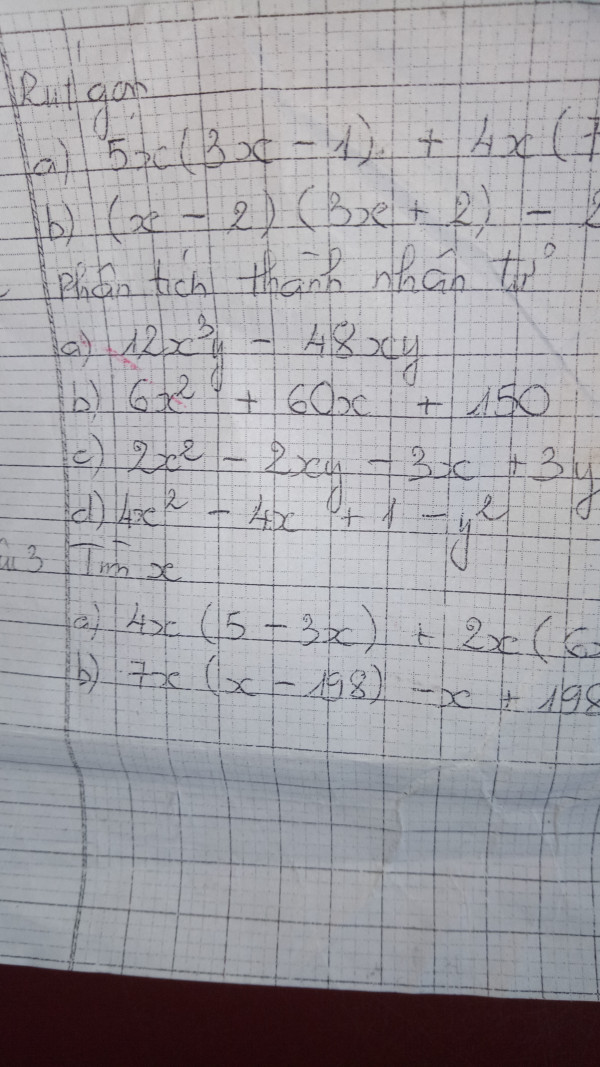 Rút gọn
a) 5x(3x - 1) + 4x(7
b) (x - 2)(3x + 2) - 2
Phân tích thành nhân tử
a) 12x³y - 48xy
b) 6x² + 60x + 150
c) 2x² - 2xy - 3x + 3y
d) 4x² - 4x + 1 - y²
3 Tìm x
a) 4x(5 - 3x) + 2x(6x
b) 7x(x - 198) - x + 198